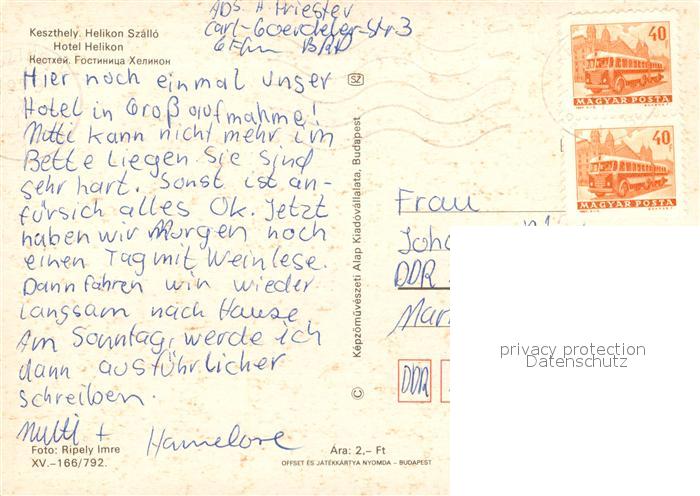 Keszthely. Helikon Szálló
Hotel Helikon
Кестхей. Гостиница Хеликон
ADS. H. Friester
Carl-Goerdeler-Str 3
6 Ffm BRD
Hier noch einmal unser
Hotel in Großaufnahme!
Mutti kann nicht mehr im
Bette liegen Sie sind
sehr hart. Sonst ist an-
fürsich alles Ok. Jetzt
haben wir Morgen noch
einen Tag mit Weinlese.
Dann fahren wir wieder
langsam nach Hause
Am Sonntag, werde ich
dann ausführlicher
schreiben.
Mutti + Hannelore
Foto: Ripely Imre
XV.–166/792.
Ára: 2,– Ft
OFFSET ÉS JÁTÉKKÁRTYA NYOMDA – BUDAPEST
SZ
© Képzőművészeti Alap Kiadóvállalata, Budapest
40
MAGYAR POSTA
40f
MAGYAR POSTA
Frau
DDR
DDR
privacy protection
Datenschutz